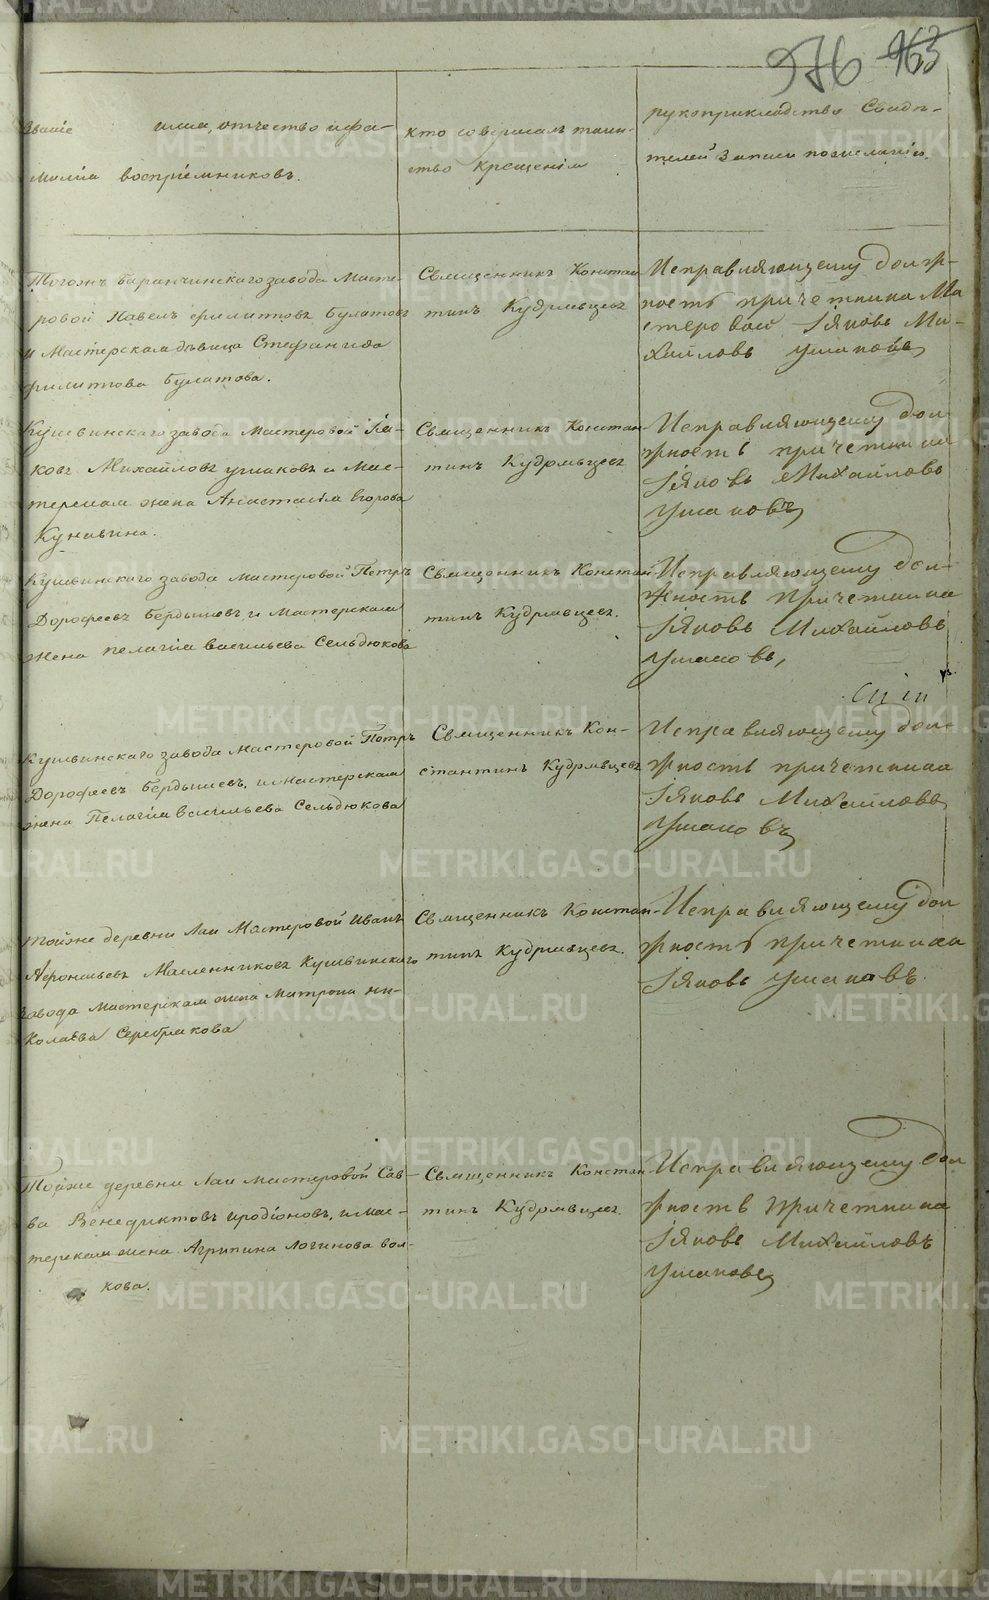 976 963
Званіе имя, отчество и фа-
милія воспріемниковъ.
кто совершалъ таин-
ство Крещенія
рукоприкладство Свидѣ-
телей Записи по желанію.
Тогожъ Баранчинскаго завода Масте-
ровой Павелъ Филиповъ Булатовъ
и Мастерская дѣвица Стефанида
Филипова Булатова.
Священникъ Констан
тинъ Кудрявцевъ
Исправляющему долж-
ность причетника Ма
стеровой Іяковъ Ми-
хайловъ Ушаковъ
Кушвинскаго завода Мастеровой Іа-
ковъ Михайловъ Ушаковъ и Мас-
терская жена Анастасія Егорова
Кунавина.
Священникъ Констан
тинъ Кудрявцевъ
Исправляющему дол
жность причетника
Іяковъ Михайловъ
Ушаковъ
Кушвинскаго завода Мастеровой Петръ
Дорофеевъ Бердышевъ и Мастерская
Жена Пелагія Васильева Сельдюкова
Священникъ Констан
тинъ Кудрявцевъ.
Исправляющему дол-
жность Причетника
Іяковъ Михайловъ
Ушаковъ,
Кушвинскаго завода Мастеровой Петръ
Дорофеевъ Бердышевъ, и Мастерская
жена Пелагія Васильева Сельдюкова
Священникъ Кон-
стантинъ Кудрявцевъ
Исправляющему дол-
жность причетника
Іяковъ Михайловъ
Ушаковъ
Тойже деревни Лаи Мастеровой Иванъ
Афонасьевъ Масленниковъ Кушвинскаго
завода Мастерская жена Матрона Ни-
колаева Серебрякова
Священникъ Констан-
тинъ Кудрявцевъ.
Исправляющему дол
жность причетника
Іяковъ Ушаковъ
Тойже деревни Лаи Мастеровой Сав-
ва Венедиктовъ Иродіоновъ, и Мас-
терская жена Агрипина Логинова Вол-
кова.
Священникъ Констан
тинъ Кудрявцевъ.
Исправляющему дол
жность Причетника
Іяковъ Михайловъ
Ушаковъ
METRIKI.GASO-URAL.RU